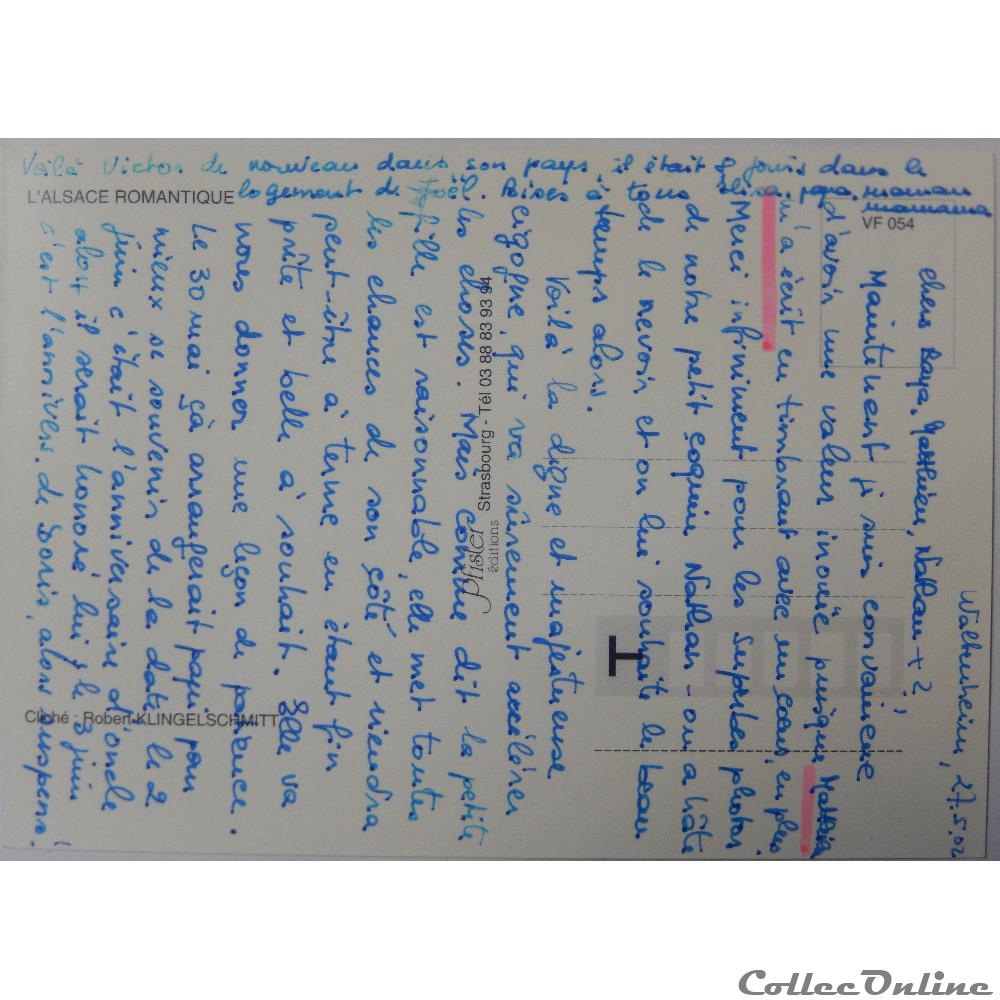 Waltenheim, 27.5.02
Chers Raya, Matthieu, Nathan + ?,
Maintenant je suis convaincue
d'avoir une valeur inouïe puisque Matthieu
m'a écrit en timbrant avec un cœur, en plus.
Merci infiniment pour les superbes photos
de notre petit coquin Nathan - on a hâte
de le revoir et on lui souhaite le beau
temps alors.
Voilà la digne et majestueuse
cigogne, qui va sûrement accélérer
les choses. Mais comme dit la petite
fille est raisonnable, elle met toutes
les chances de son côté et viendra
peut-être à terme en étant fin
prête et belle à souhait. Elle va
nous donner une leçon de patience.
Le 30 mai çà arrangerait papi pour
mieux se souvenir de la date, le 2
juin c'était l'anniversaire d'oncle
alors il serait honoré lui, le 3 juin
c'est l'annivers. de Doris, alors suspens!
Voilà Victor de nouveau dans son pays, il était 8 jours dans le
logement de Joël. Bises à tous papa, maman
mamama
L'ALSACE ROMANTIQUE
VF 054
Pfister
éditions
Strasbourg - Tél 03 88 83 93 94
Cliché : Robert KLINGELSCHMITT
T
CollecOnline